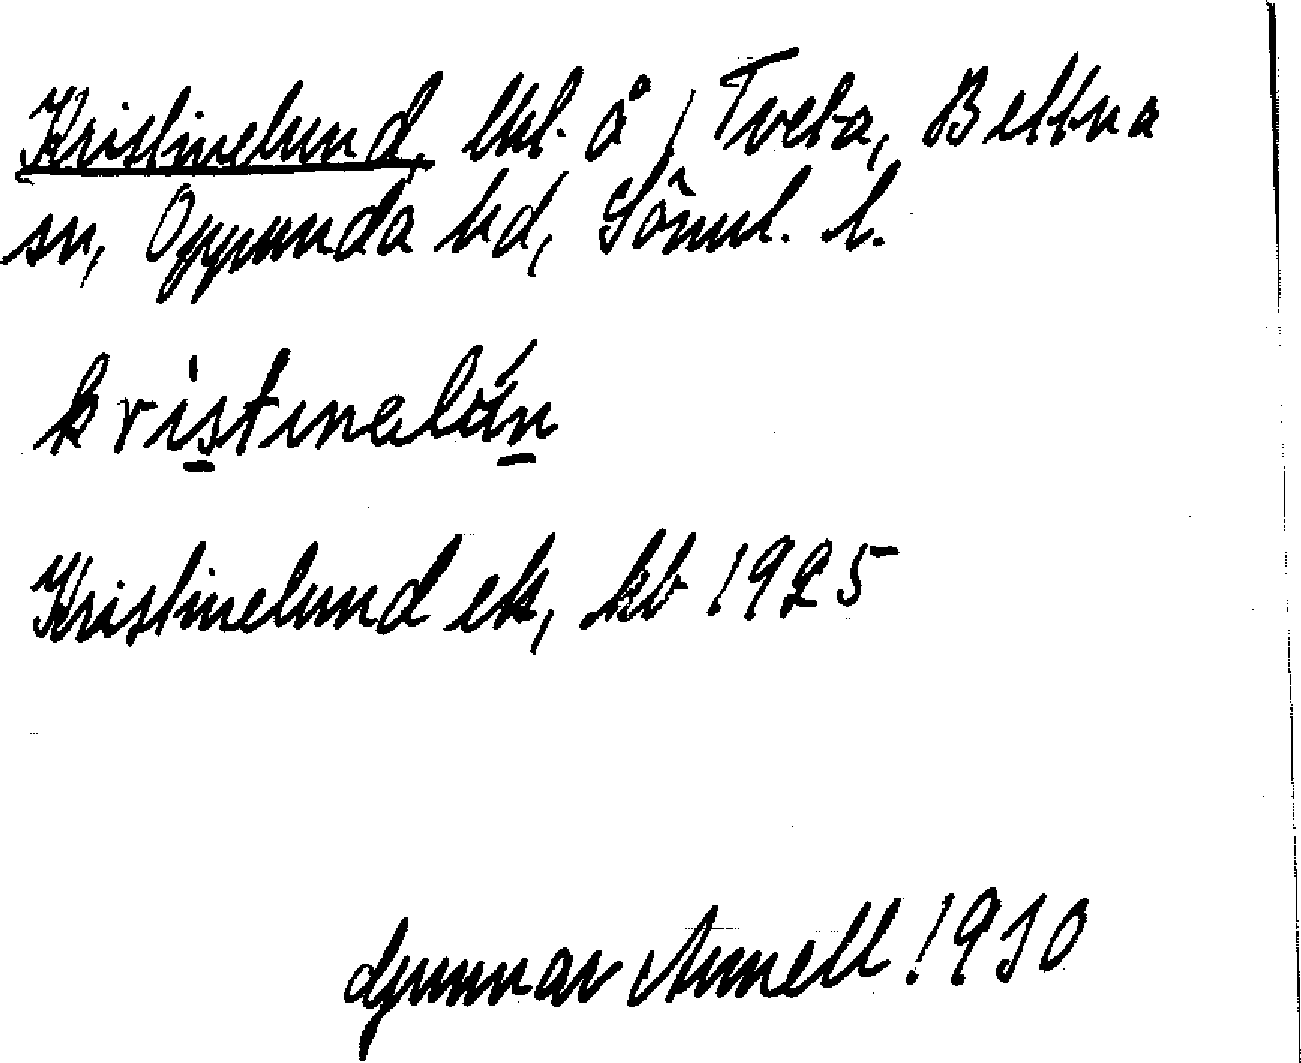 Kristinelund, lht. å 1 Tveta, Bettna
sn, Oppunda hd, Sörml. l.
kristinalún
Kristinelund ek, kb 1925
Gunnar Arnell 1930